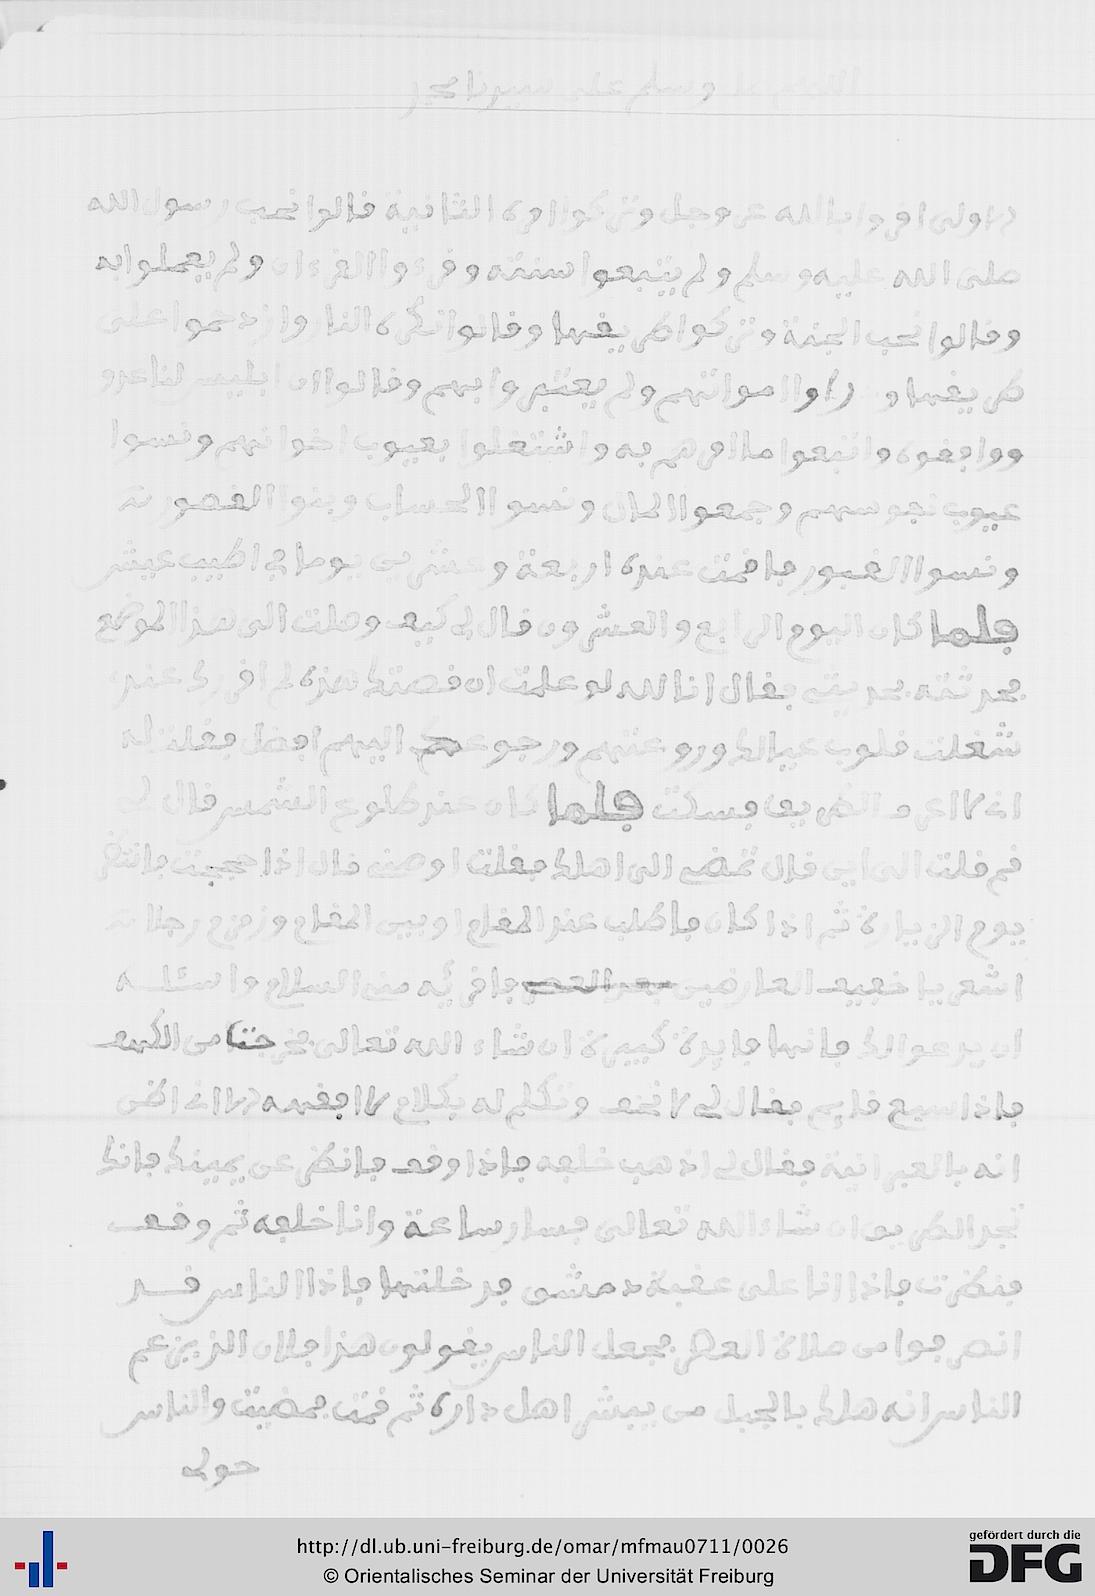 وسلم على سيدنا محمد
الاولى اقروا بالله عز وجل وتركوا امره الثانية قالوا نحب رسول الله
صلى الله عليه وسلم ولم يتبعوا سنته وقرءوا القرءان ولم يعملوا به
وقالوا نحب الجنة وتركوا طريقها وقالوا نكره النار وازدحموا على
طريقها و راوا امواتهم ولم يعتبروا بهم وقالوا ان ابليس لنا عدو
ووافقوه واتبعوا ما امرهم به واشتغلوا بعيوب اخوانهم ونسوا
عيوب نفوسهم وجمعوا المال ونسوا الحساب وبنوا القصور
ونسوا القبور فاقمت عنده اربعة وعشرين يوما في اطيب عيش
فلما كان اليوم الرابع والعشرون قال لي كيف وصلت الى هذا الموضع
فحدثته بحديثي فقال انا لله لو علمت ان قصتك هذه لم اتركك عندي
شغلت قلوب عيالك وروعتهم ورجوعكم اليهم افضل فقلت له
اني لا اعرف الطريق فسكت فلما كان عند طلوع الشمس قال لي
قم قلت الى اين قال تمضي الى اهلك فقلت اوصني قال اذا حججت فانتظر
يوم الزيارة ثم اذا كان فاطلب عند المقام او بين المقام وزمزم رجلا
اشقر يا خفيف العارضين بعد العصر فاقريه مني السلام واسئله
ان يدعو الك فانها فايدة كبيرة ان شاء الله تعالى فخرجنا من الكهف
فاذا سبع قايم فقال لي لا تخف وتكلم له بكلام لا افهمه الا اني اظن
انه بالعبرانية فقال لي اذهب خلفه فاذا وقف فانظر عن يمينك فانك
تجد الطريق ان شاء الله تعالى فسار ساعة وانا خلفه ثم وقف
فنظرت فاذا انا على عقبة دمشق فدخلتها فاذا الناس قد
انصرفوا من صلاة العصر فجعل الناس يقولون هذا فلان الذي زعم
الناس انه هلك بالجبل من يبشر اهل داره ثم قمت فمضيت والناس
حولي
http://dl.ub.uni-freiburg.de/omar/mfmau0711/0026
© Orientalisches Seminar der Universität Freiburg
gefördert durch die
DFG